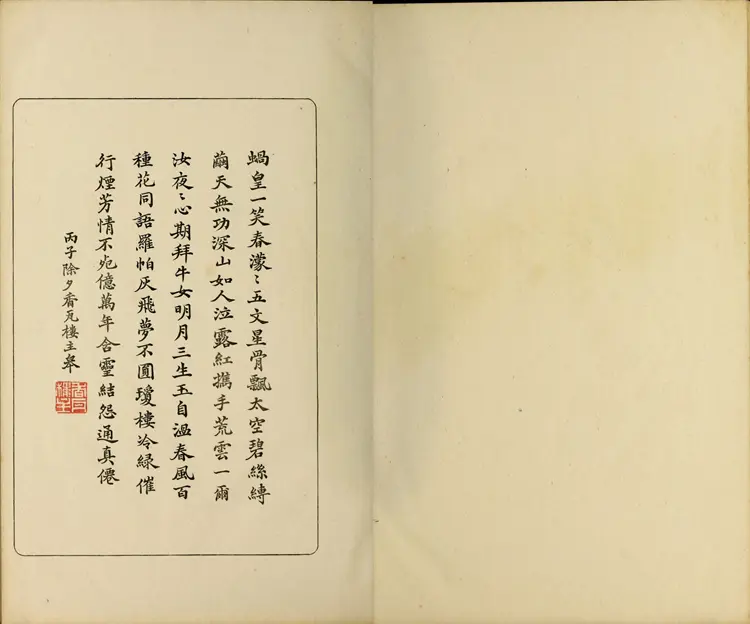 蝸皇一笑春濛〻五文星骨飄太空碧絲縛
繭天無功深山如人泣露紅攜手荒雲一爾
汝夜〻心期拜牛女明月三生玉自溫春風百
種花同語羅帕灰飛夢不圓瓊樓冷綠催
行煙芳情不死億萬年含靈結怨通真僊
丙子除夕香瓦樓主